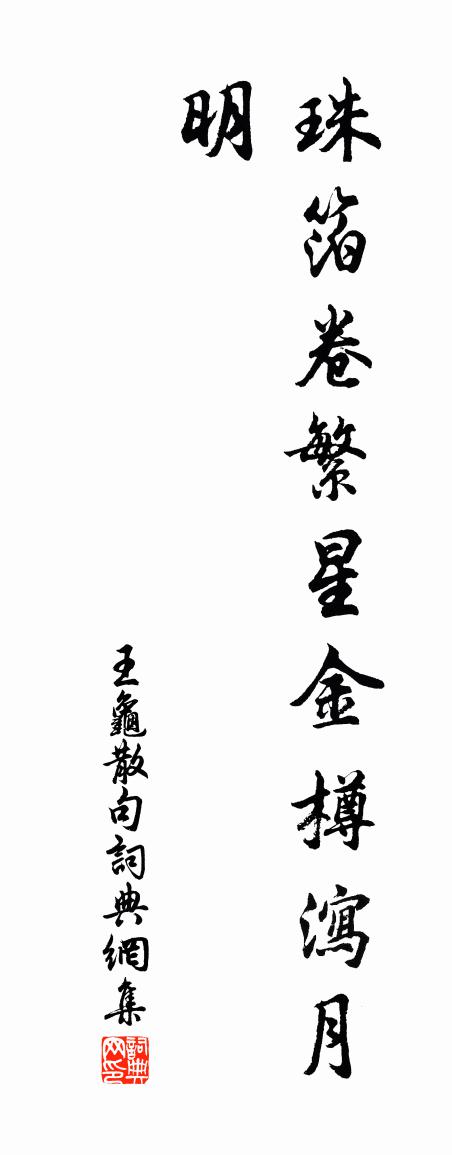 珠箔卷繁星金樽瀉月
明
王龜散句詞典網集
詞典
网印